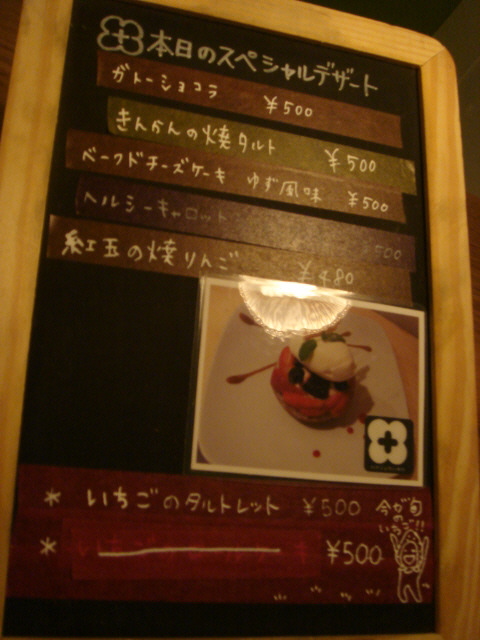 本日のスペシャルデザート
ガトーショコラ ¥500
きんかんの焼タルト ¥500
ベークドチーズケーキ ゆず風味 ¥500
ヘルシーキャロット 500
紅玉の焼りんご ¥480
* いちごのタルトレット ¥500 今が旬
の
いちご!!
* ¥500